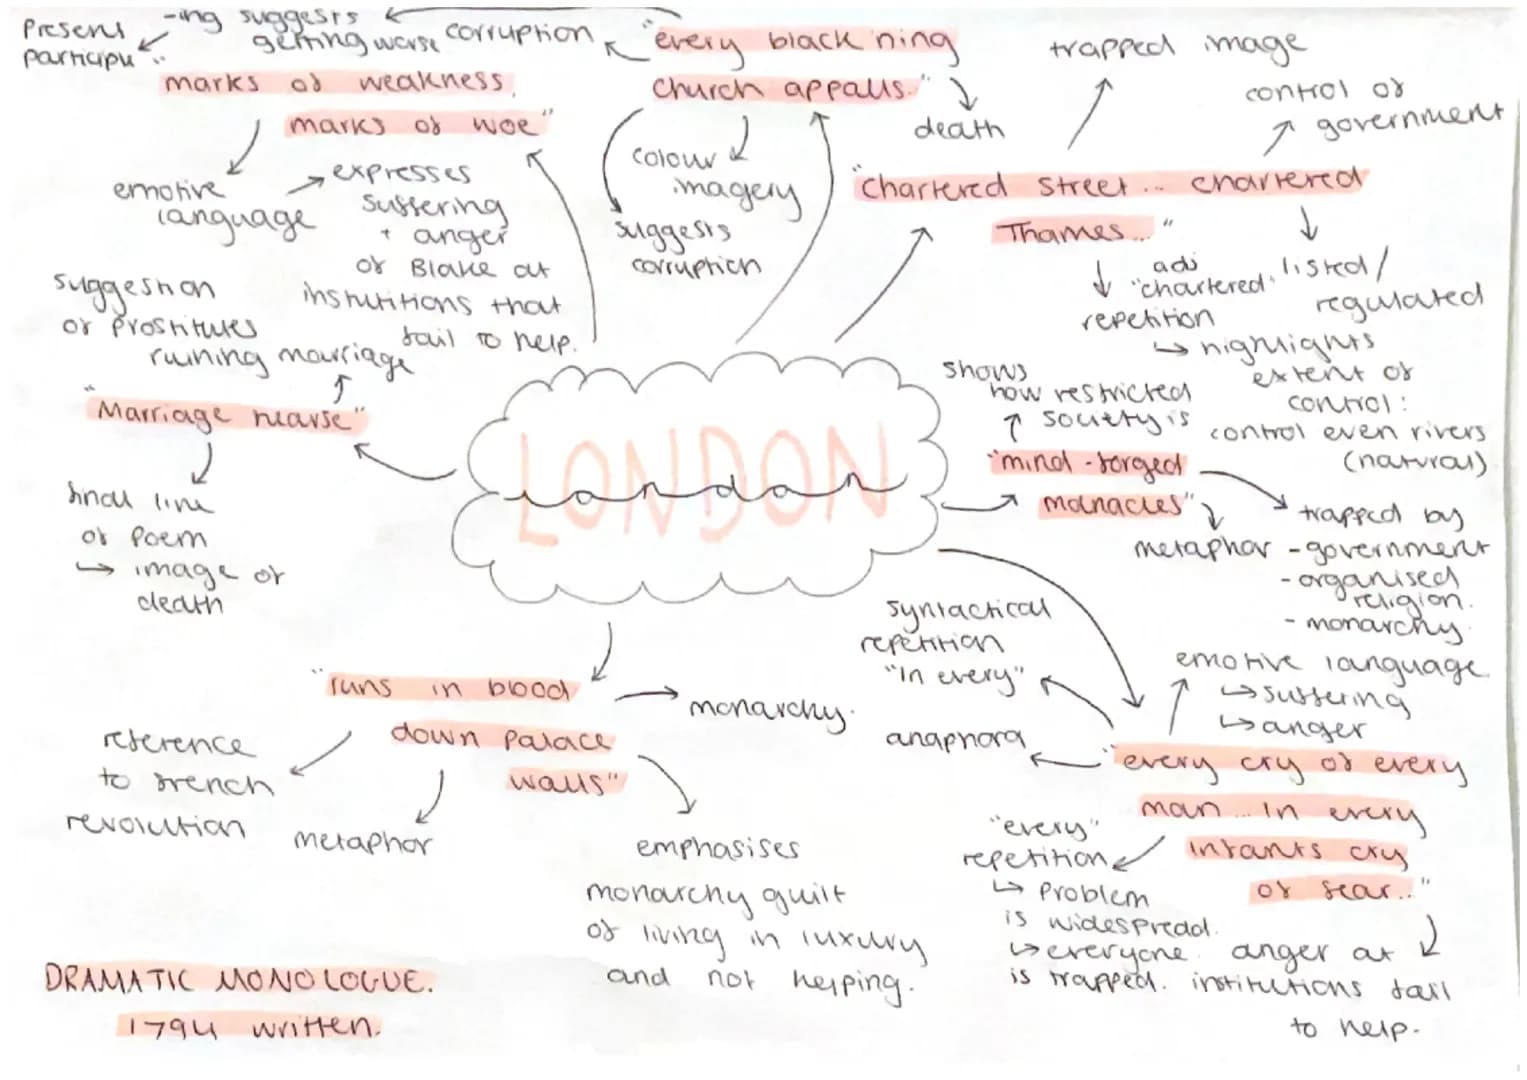 Present participu..
-ing suggests
getting worse
corruption
"every black'ning
church appalls."
death
colour
imagery
suggests
corruption
marks of weakness,
marks of woe"
emotive
language
expresses
suffering
+ anger
of Blake at
institutions that
fail to help.
trapped image
control of
government
"chartered street... chartered
Thames..."
adj
"chartered"
repetition
listed/
regulated
highlights
extent of
control:
control even rivers
(natural)
suggestion
of prostitutes
ruining marriage
"Marriage hearse"
final line
of poem
↳ image of
death
LONDON
london
shows
how restricted
society is
"mind-forged
manacles"
metaphor
trapped by
-government
-organised
religion.
-monarchy.
"runs in blood
down palace
walls"
monarchy.
reference
to french
revolution
metaphor
emphasises
monarchy guilt
of living in luxury
and not helping.
syntactical
repetition
"In every"
anaphora
emotive language
↳ suffering
↳ anger
"every cry of every
man... in every
infants cry
of fear..."
"every"
repetition
↳ problem
is widespread.
↳ everyone
is trapped.
anger at
institutions fail
to help.
DRAMATIC MONOLOGUE.
1794 written.